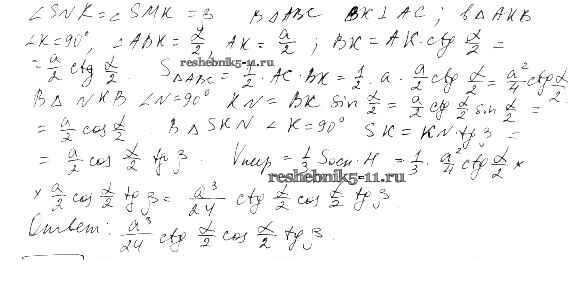 ∠SNK = ∠SMK = β В △ABC BK ⊥ AC; В △AKB
∠K = 90°, ∠ABK = α/2, AK = a/2; BK = AK·ctg α/2 =
= a/2 ctg α/2. S△ABC = 1/2 · AC · BK = 1/2 · a · a/2 ctg α/2 = a²/4 ctg α/2
В △ NKB ∠N = 90° KN = BK sin α/2 = a/2 ctg α/2 sin α/2 =
= a/2 cos α/2. В △ SKN ∠K = 90° SK = KN·tg β =
= a/2 cos α/2 tg β. Vпир = 1/3 Sосн·H = 1/3 · a²/4 ctg α/2 ×
reshebnik5-11.ru
× a/2 cos α/2 tg β = a³/24 ctg α/2 cos α/2 tg β
reshebnik5-11.ru
Ответ: a³/24 ctg α/2 cos α/2 tg β.